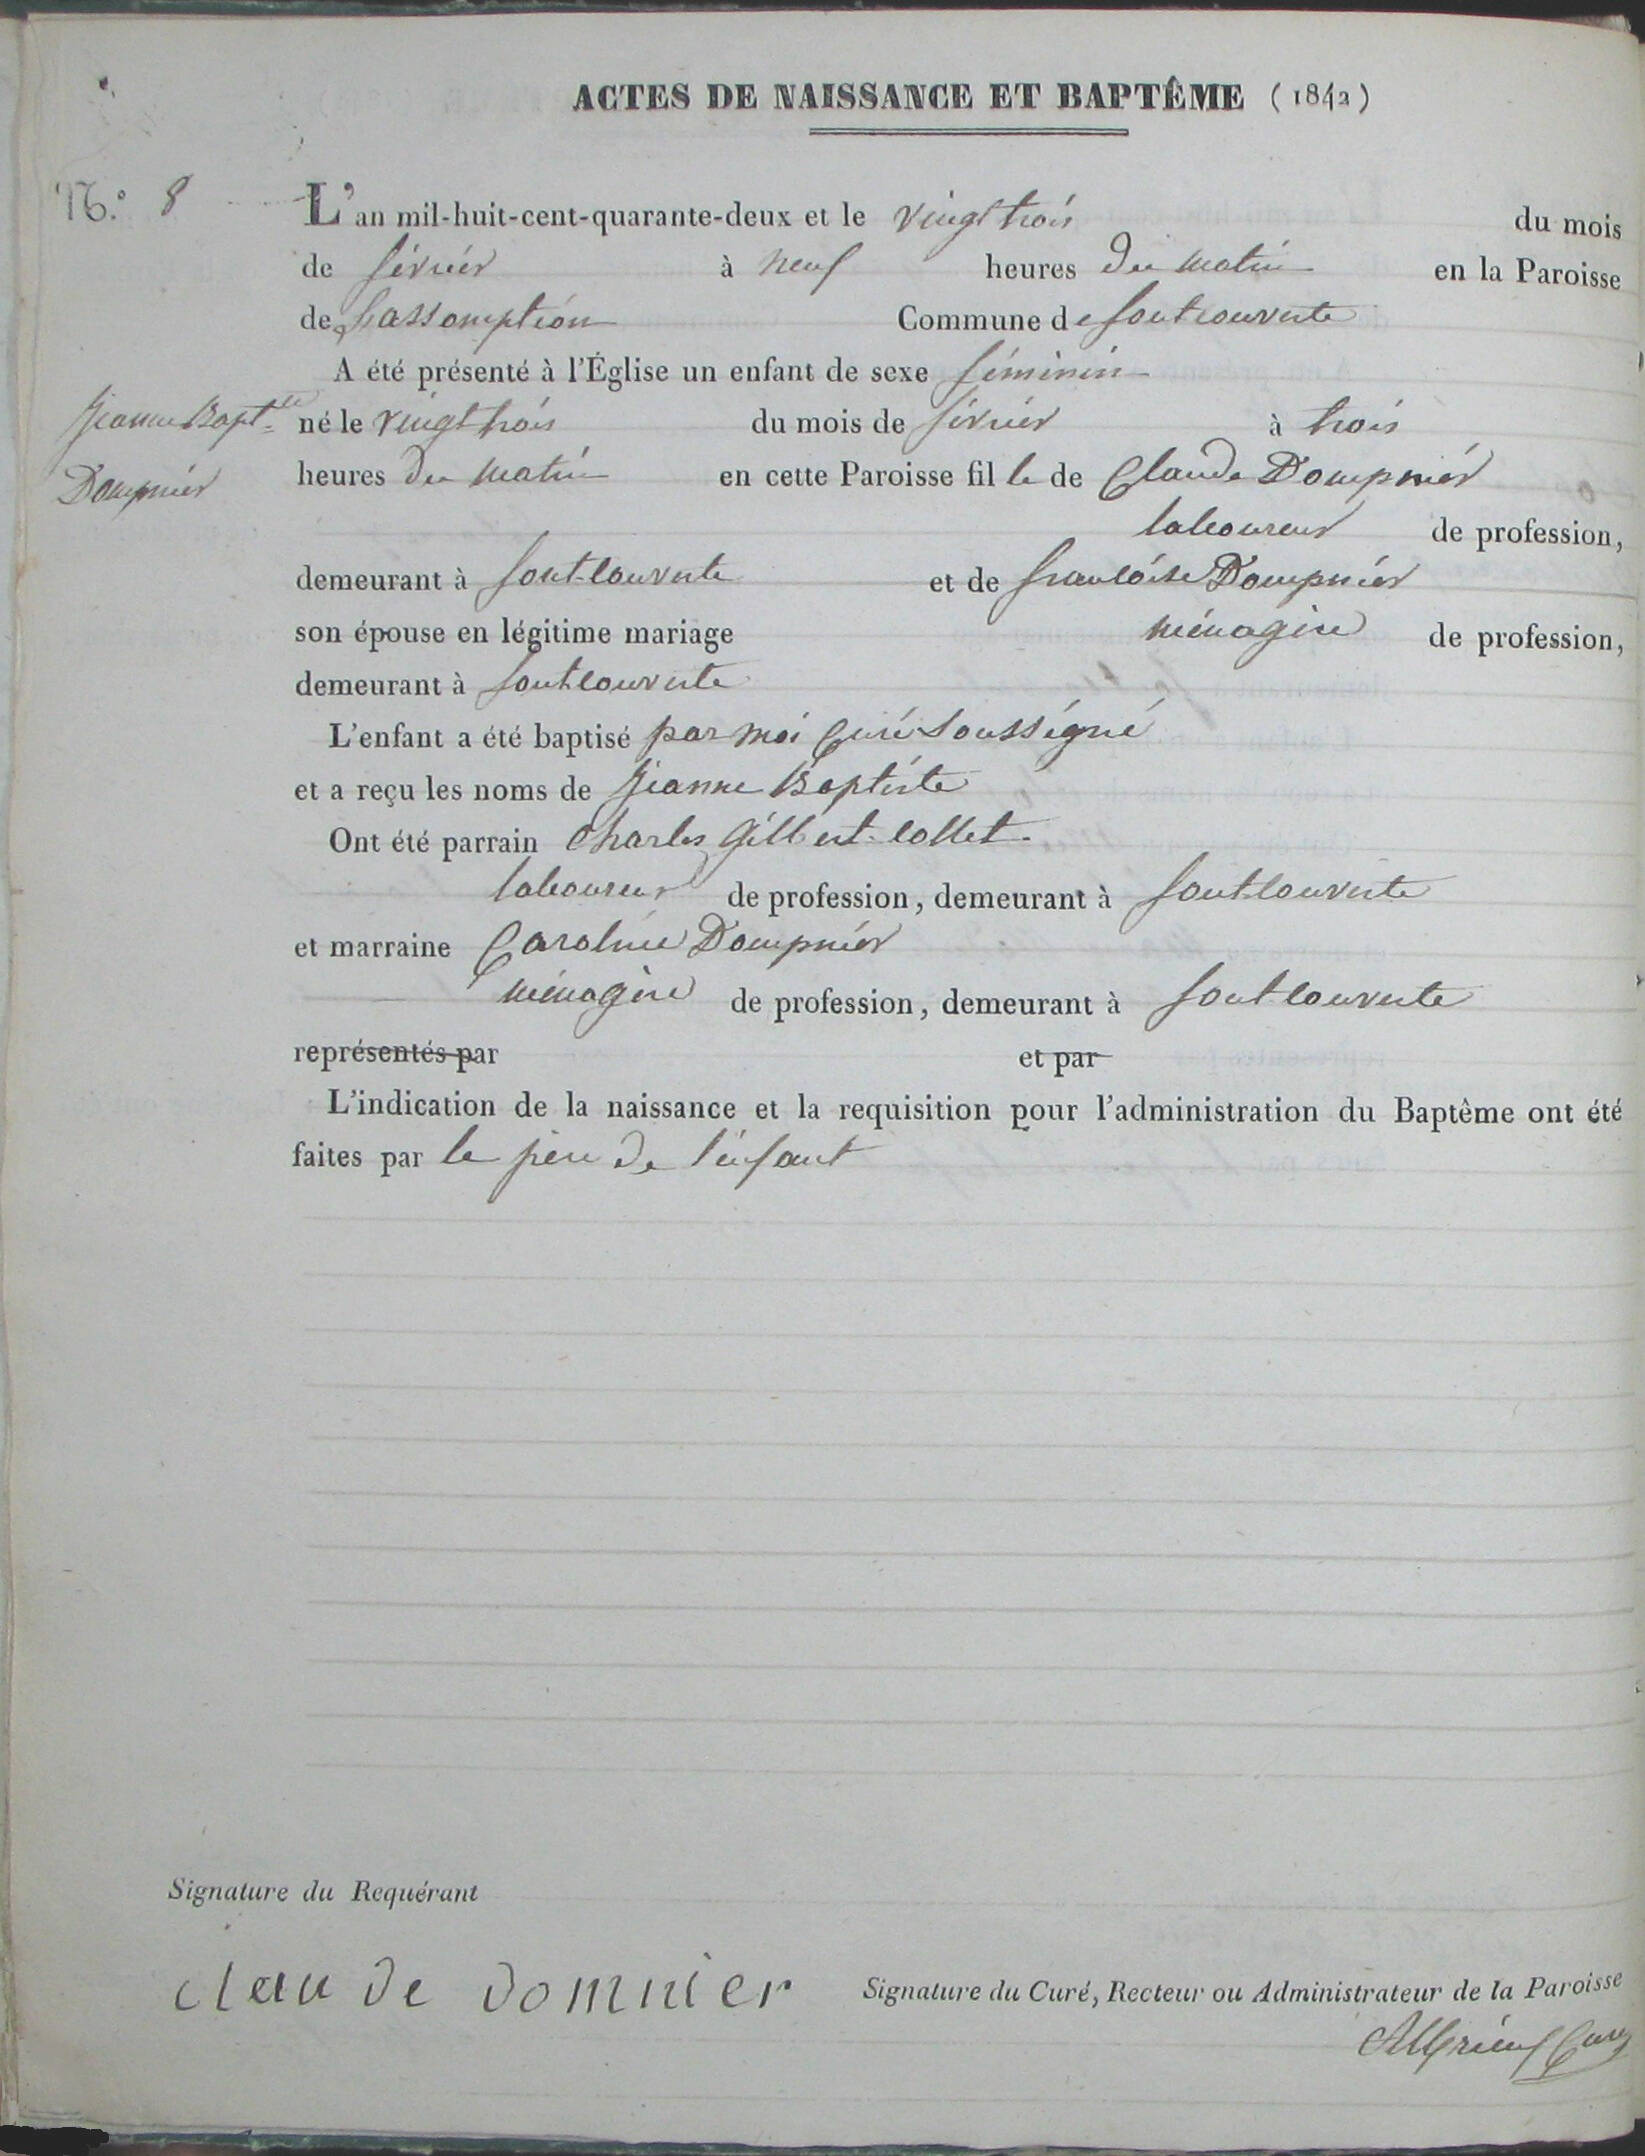 ACTES DE NAISSANCE ET BAPTÊME (1842)
N.° 8
L'an mil-huit-cent-quarante-deux et le vingt trois du mois
de février à neuf heures du matin en la Paroisse
de L'assomption Commune de fontcouverte
A été présenté à l'Église un enfant de sexe féminin
Jeanne Bapt.te
Dompnier
né le vingt trois du mois de février à trois
heures du matin en cette Paroisse fille de Claude Dompnier
laboureur de profession,
demeurant à font-couverte et de françoise Dompnier
son épouse en légitime mariage ménagère de profession,
demeurant à fontcouverte
L'enfant a été baptisé par moi Curé Soussigné
et a reçu les noms de Jeanne Baptiste
Ont été parrain Charles Gilbert-collet
laboureur de profession, demeurant à fontcouverte
et marraine Caroline Dompnier
ménagère de profession, demeurant à fontcouverte
représentés par et par
L'indication de la naissance et la requisition pour l'administration du Baptême ont été
faites par le père de l'enfant
Signature du Requérant
claude domnier
Signature du Curé, Recteur ou Administrateur de la Paroisse
Curé